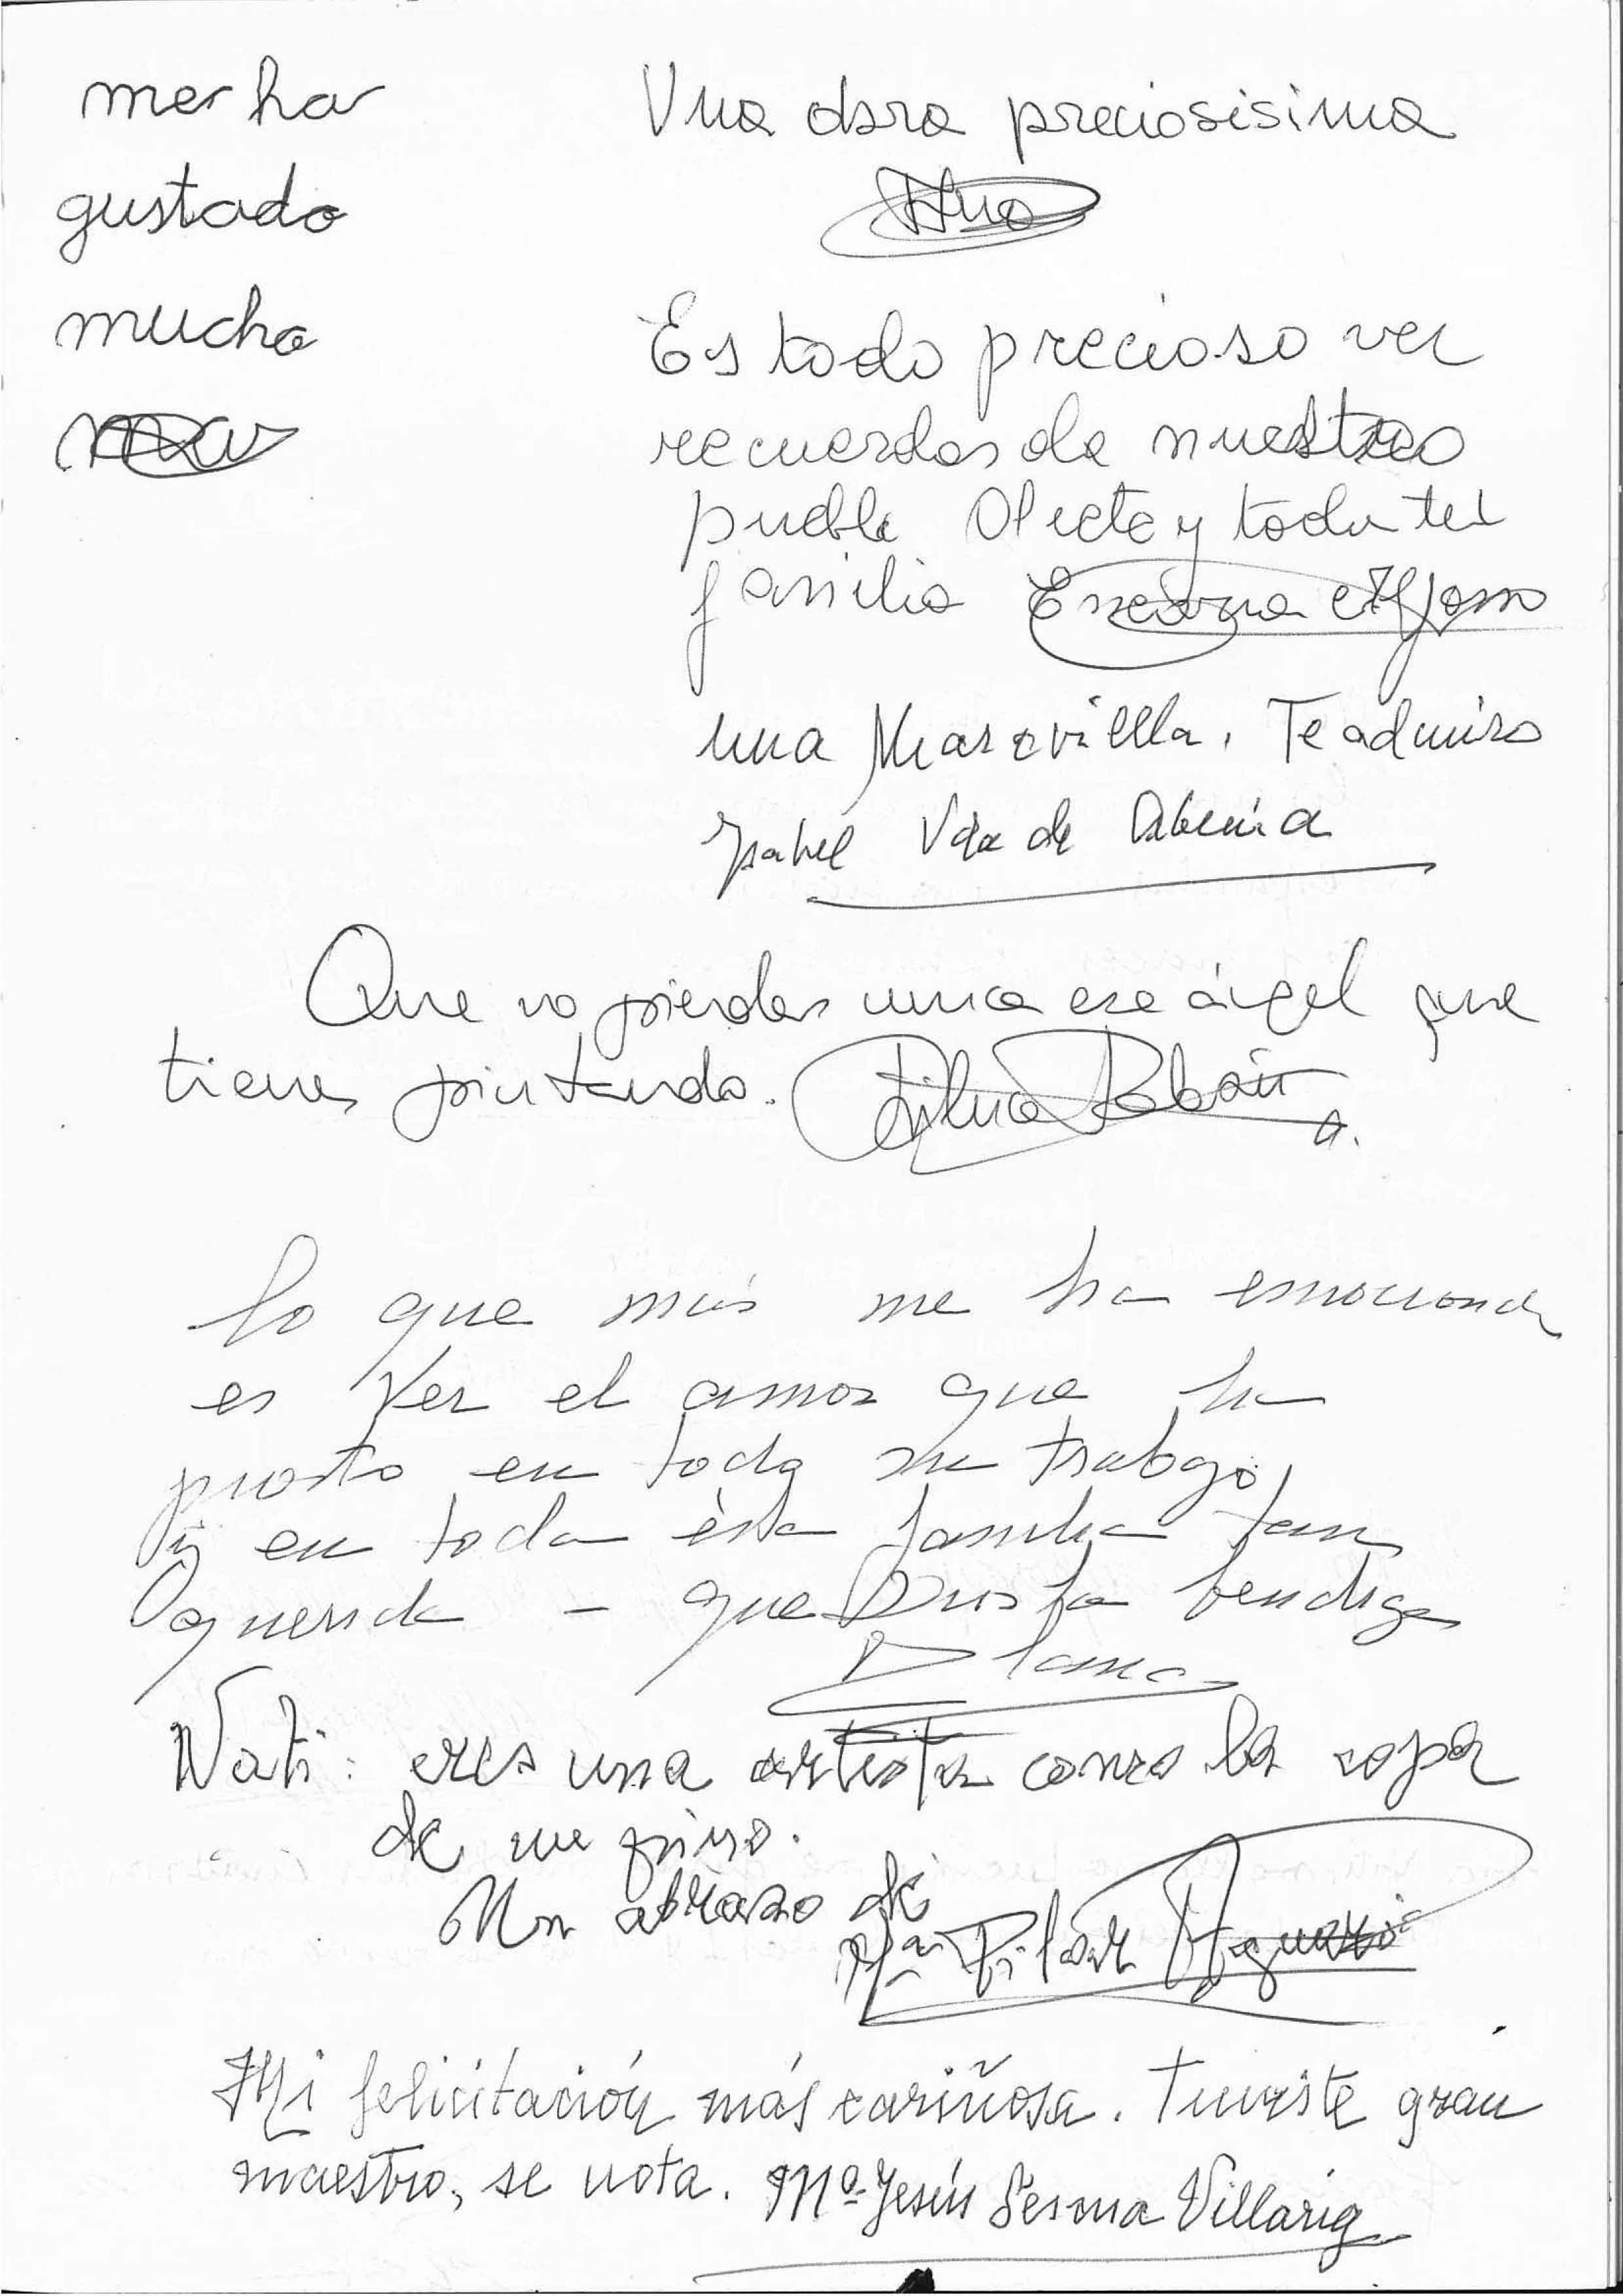 me ha
gustado
mucho
Una obra preciosisima
Es todo precioso ver
recuerdos de nuestro
pueblo Oliete y toda tu
familia Encarna Alfonso
una Maravilla. Te admiro
Isabel Vda de
Que no pierdas nunca ese ángel que
tienes pintando. Silvia
lo que más me ha emocionado
es Ver el amor que ha
puesto en todo su trabajo
y en toda ésta familia tan
querida - que Dios la bendiga
Nati: eres una artista como la copa
de un pino.
Un abrazo de
Mª Pilar
Mi felicitación más cariñosa. Tuviste gran
maestro, se nota. Mª Jesús Sesma Villarig